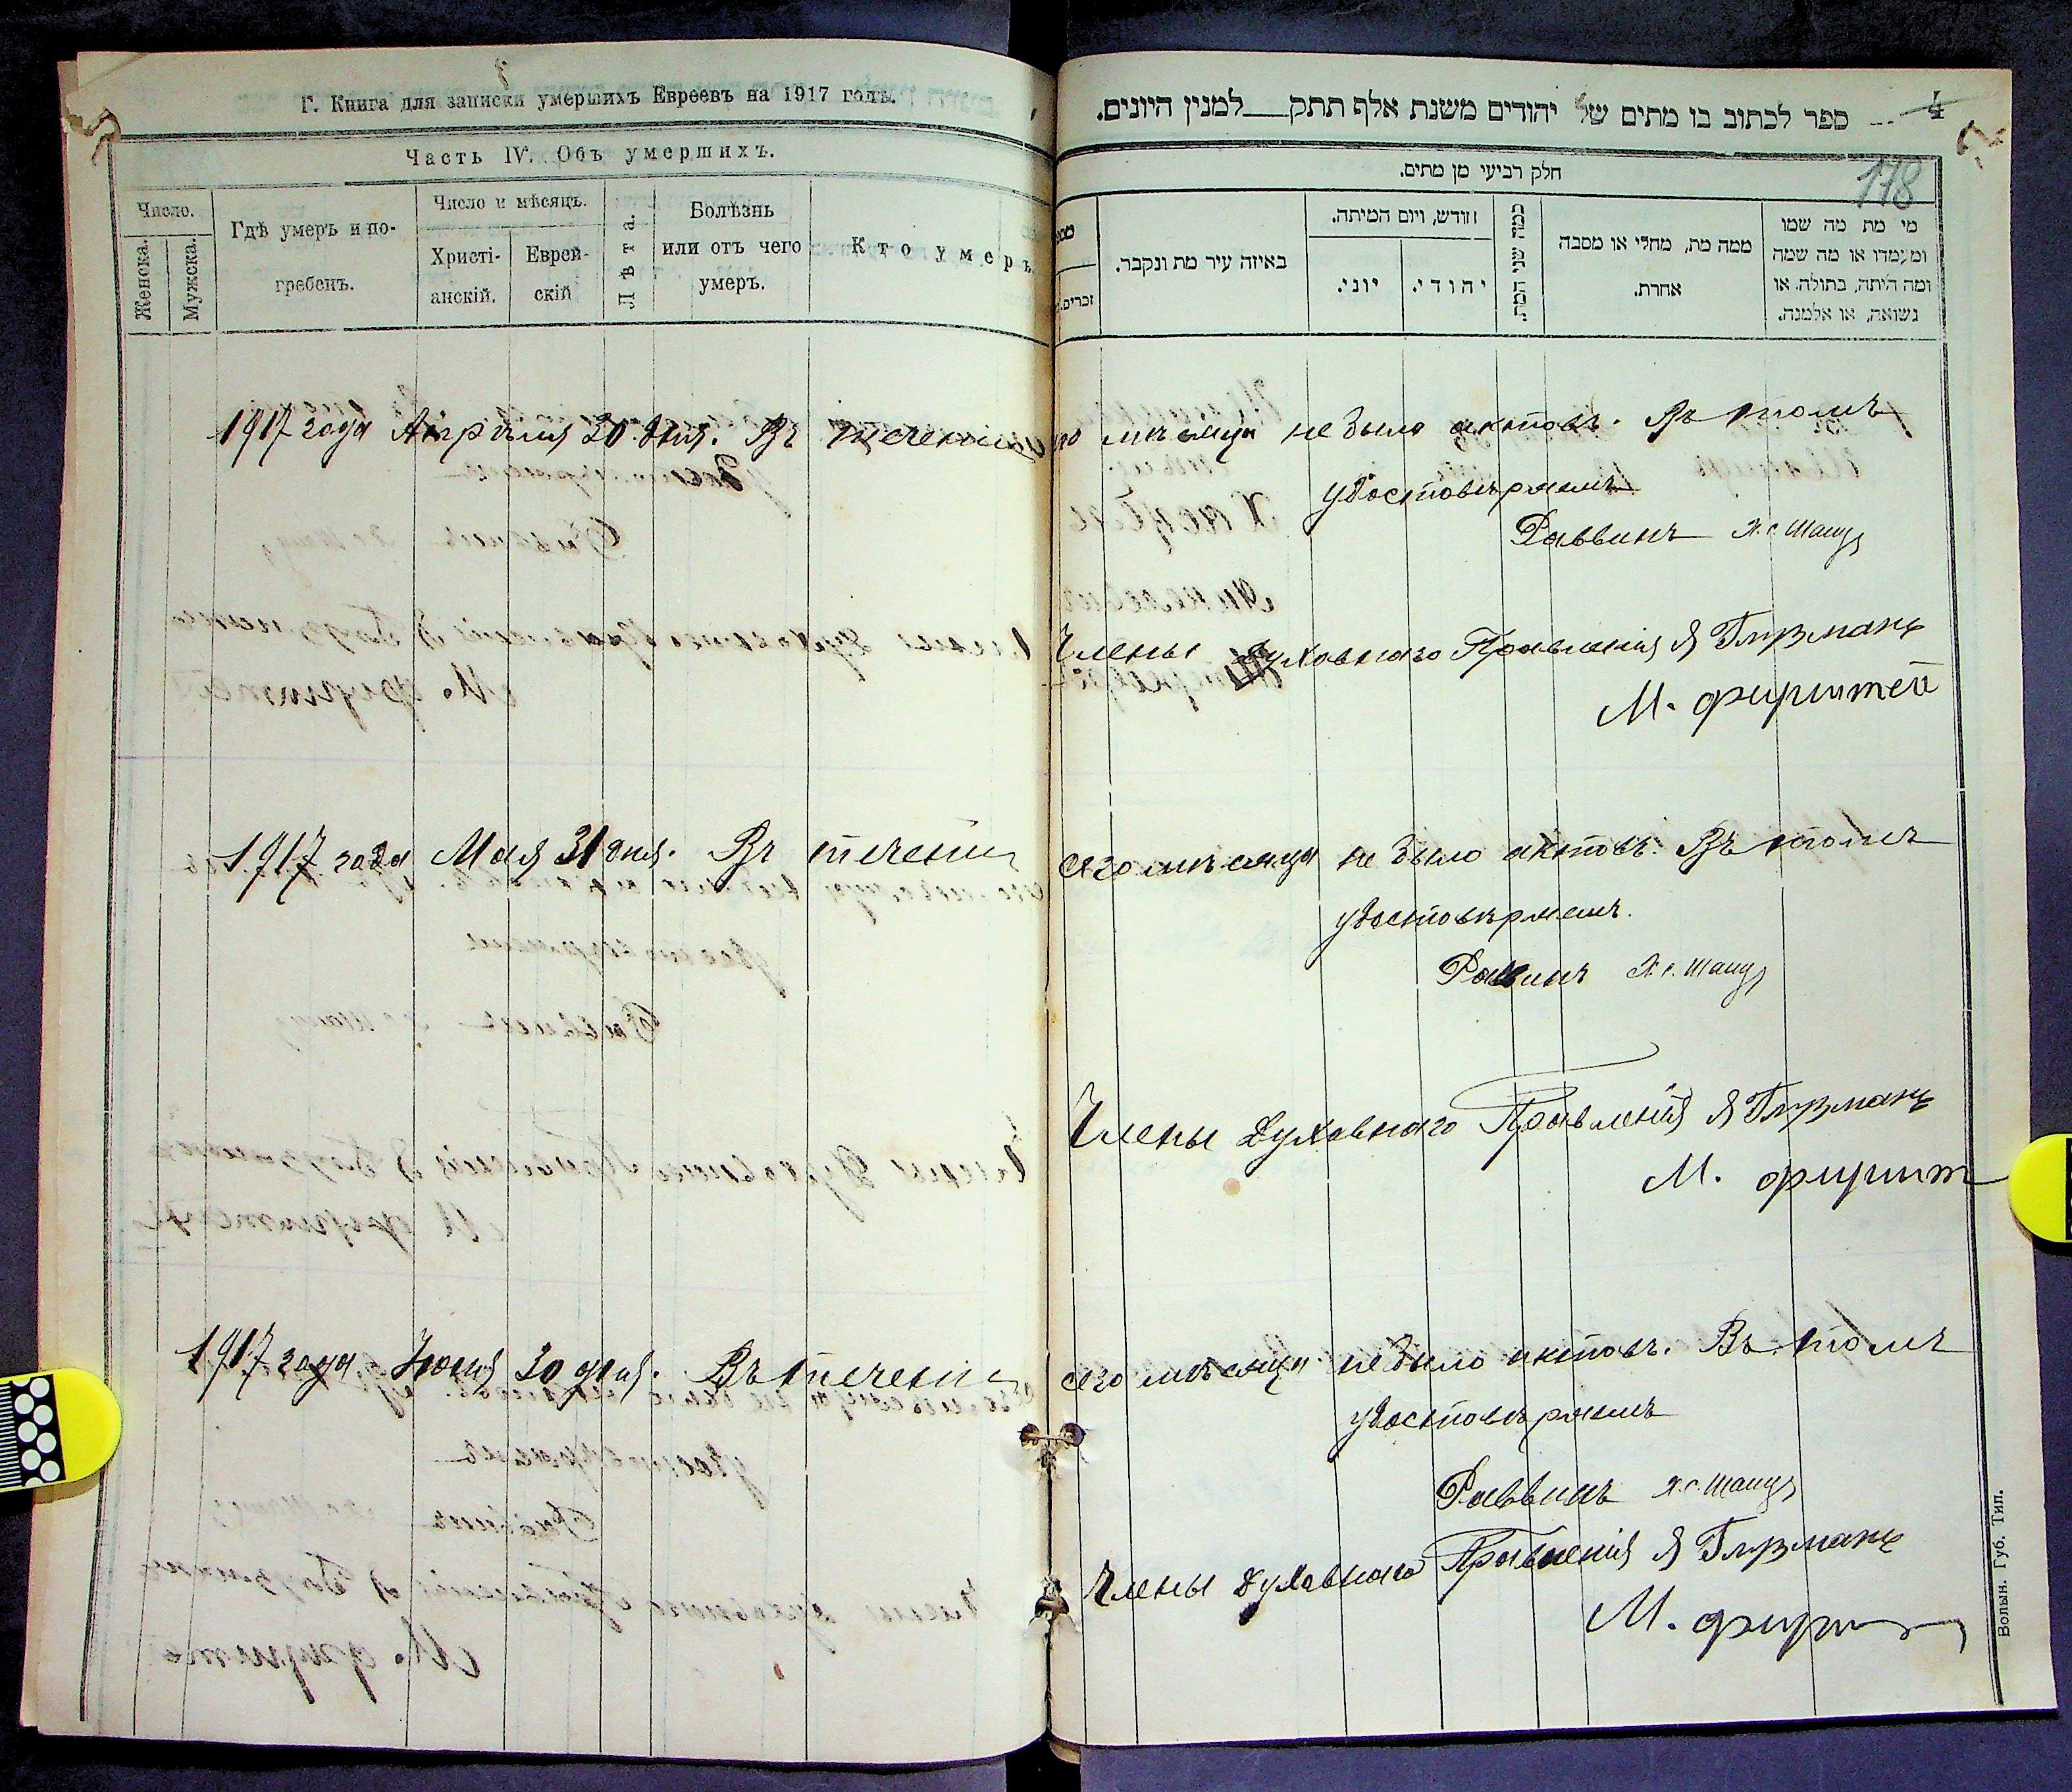 Г. Книга для записки умершихъ Евреевъ на 1917 годъ.
Часть IV. Объ умершихъ.
Число.
Женска.
Мужска.
Гдѣ умеръ и по-
гребенъ.
Число и мѣсяцъ.
Христі-
анскій.
Еврей-
скій
Лѣта.
Болѣзнь
или отъ чего
умеръ.
Кто умеръ.
4
ספר לכתוב בו מתים של יהודים משנת אלף תתק___למנין היונים.
178
חלק רביעי מן מתים.
זכרים.
באיזה עיר מת ונקבר.
חודש, ויום המיתה.
יוני.
יהודי.
כמה שני המת.
ממה מת, מחלי או מסבה
אחרת.
מי מת מה שמו
ומעמדו או מה שמה
ומה היתה, בתולה או
נשואה, או אלמנה.
1917 года Апрѣля 30 дня. Въ теченіи сего мѣсяца не было актовъ. Въ томъ
удостовѣряемъ
Раввинъ
Члены Духовнаго Правленія
М.
1917 года Мая 31 дня. Въ теченіи сего мѣсяца не было актовъ. Въ томъ
удостовѣряемъ.
Раввинъ
Члены Духовнаго Правленія
М.
1917 года Іюня 30 дня. Въ теченіи сего мѣсяца не было актовъ. Въ томъ
удостовѣряемъ
Раввинъ
Члены Духовнаго Правленія
М.
Волын. Губ. Тип.